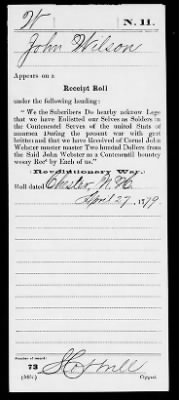 W
N. H.
John Wilson
Appears on a
Receipt Roll
under the following heading:
"We the Subscribers Do hereby acknow Lege
that we have Enlistted our Selves as Solders in
the Contenental Serves of the united Stats of
ameraca During the present war with great
brittan and that we have Received of Cornel John
Webster muster master Two hundred Dollers from
the Said John Webster as a Contenentall bountey
Recd by Each of us."
(Revolutionary War.)
Roll dated Chester, N. H.
April 27, 1779.
Number of record:
73
(565)
Copyist.